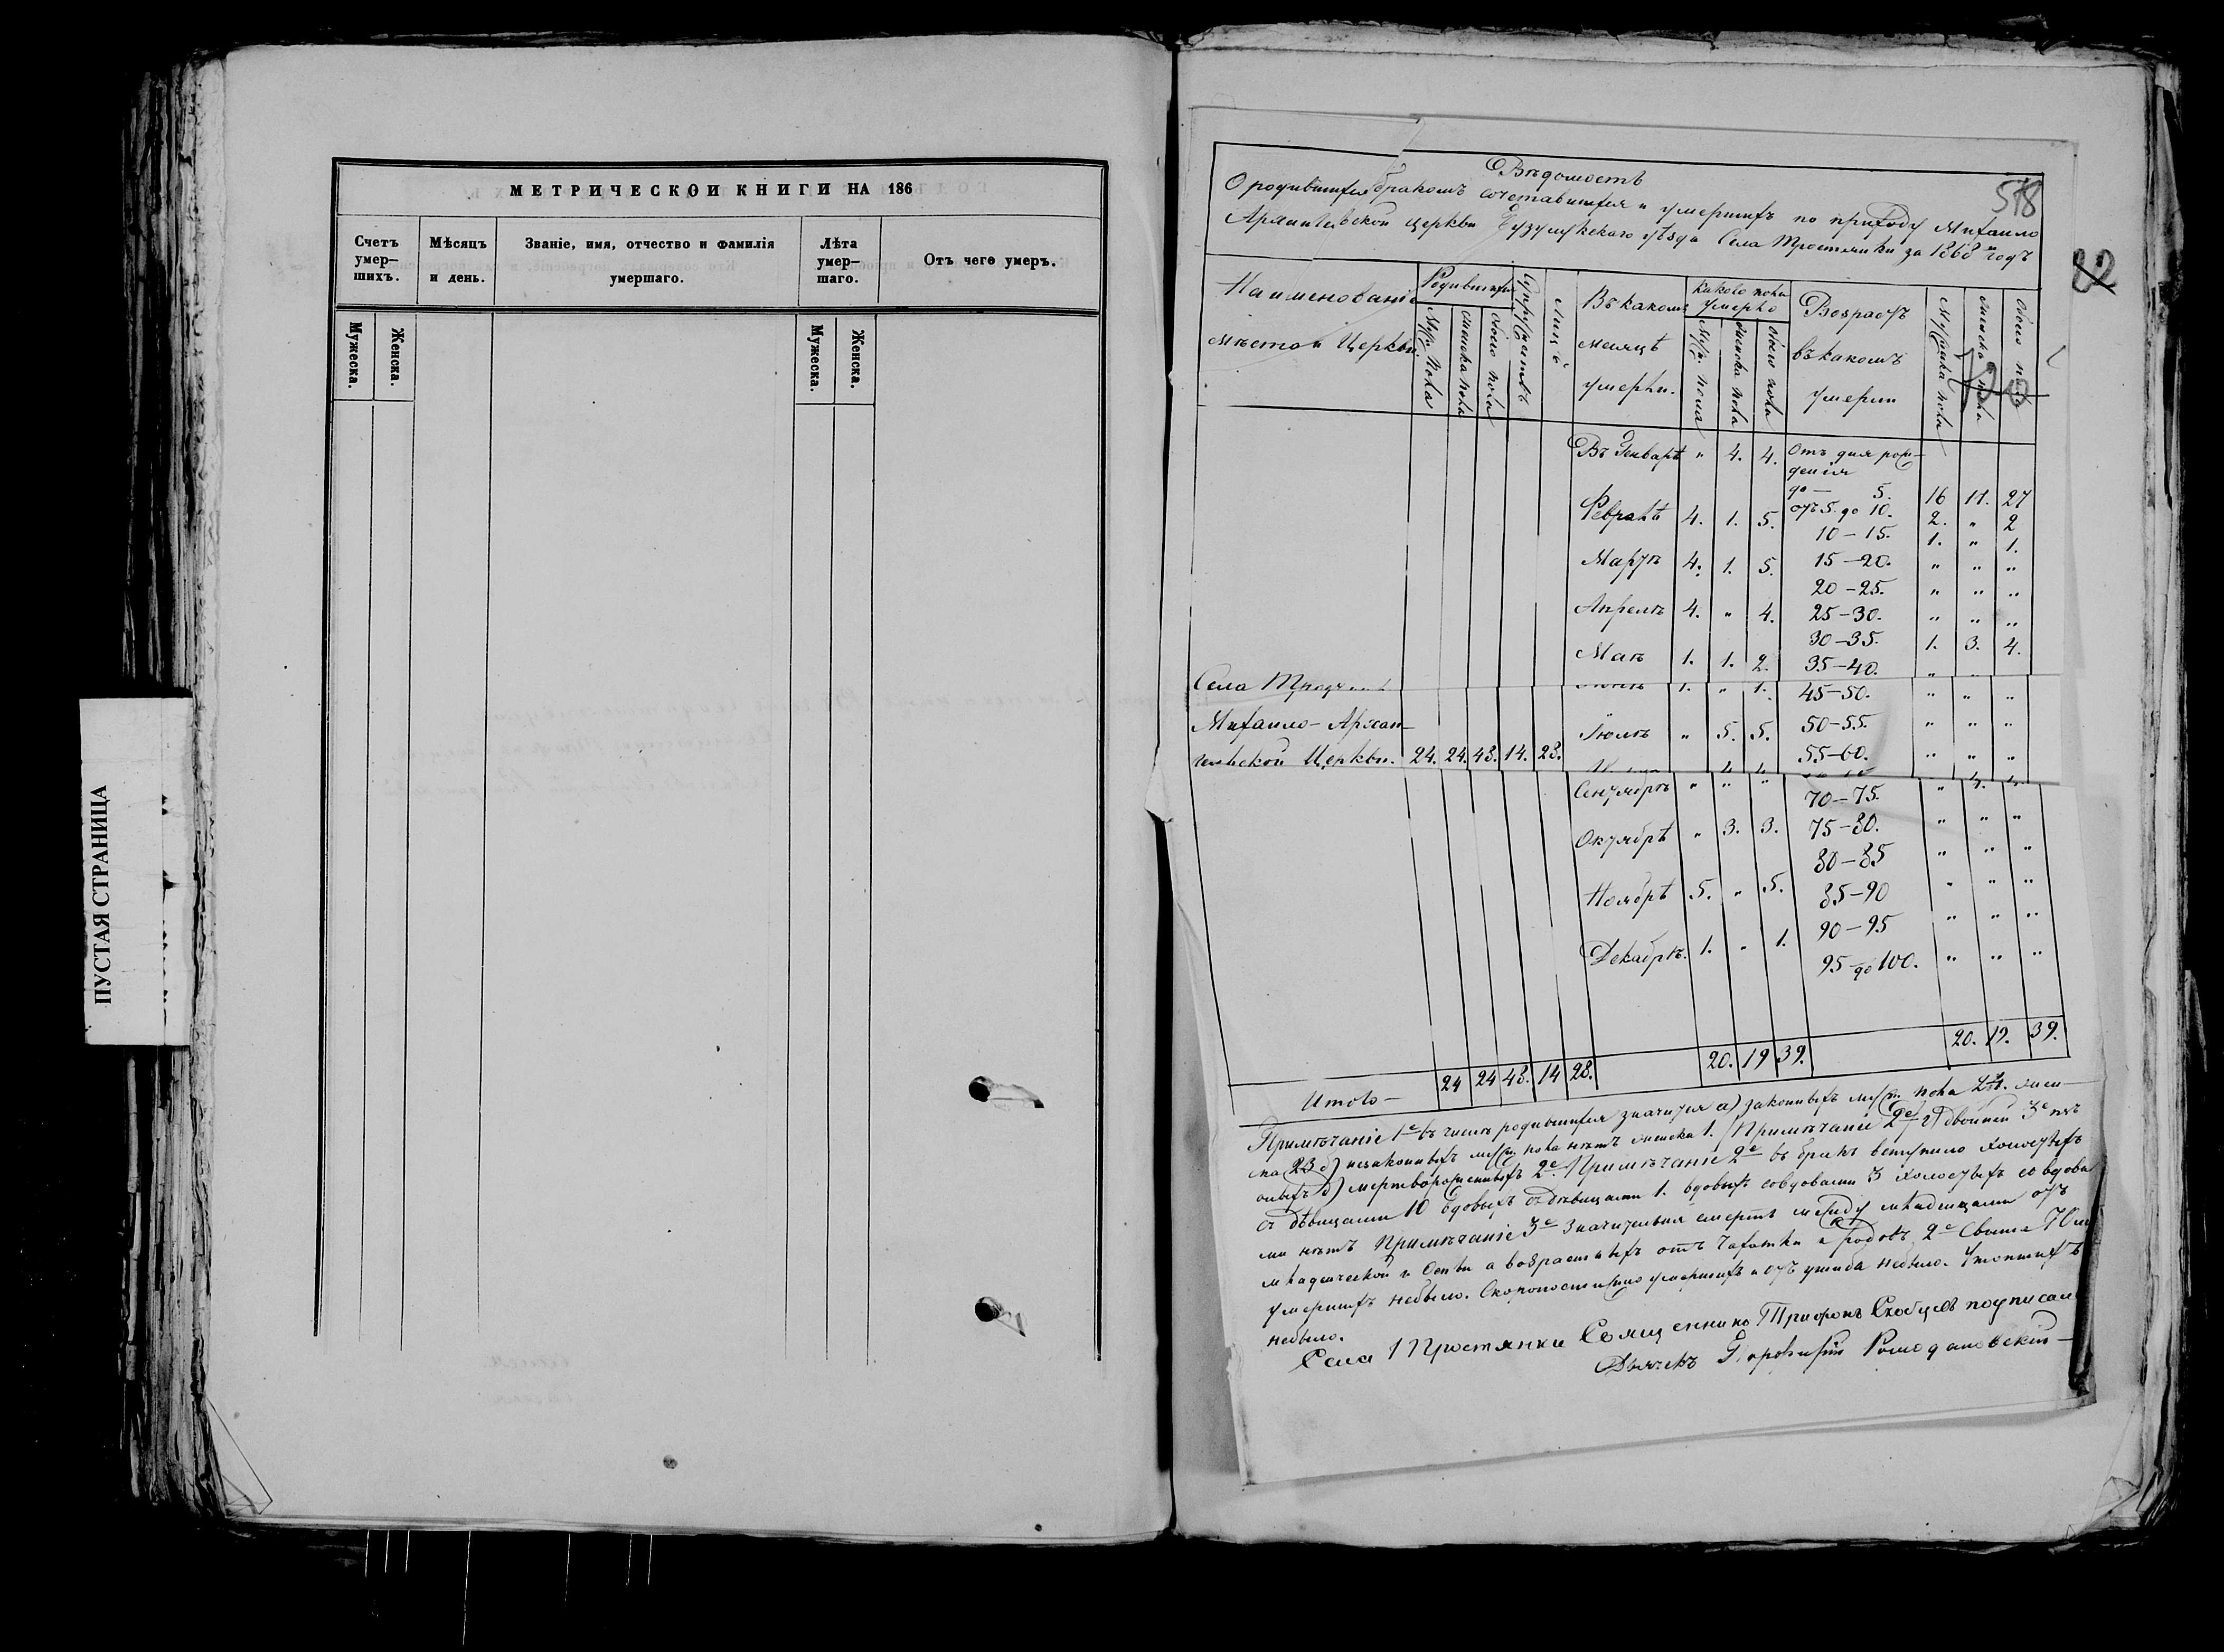 ПУСТАЯ СТРАНИЦА
МЕТРИЧЕСКОИ КНИГИ НА 186
Счетъ умер—шихъ.
Мѣсяцъ и день.
Званіе, имя, отчество и фамилія умершаго.
Лѣта умер—шаго.
Отъ чего умеръ.
Мужеска.
Женска.
Мужеска.
Женска.
Вѣдомость
518
О родившихся бракомъ сочетавшихся и умершихъ по приходу Михаило
Архангельской церкви Бузулукскаго уѣзда Села Тростянки за 1868й годъ
82
Наименованіе
мѣста и Церкви
Родившихся
Муж. пола
женска пола
обоего пола
Супружествъ
Лицъ
Въ какомъ
месяцѣ
умерли.
Какого пола
умерло
Муж. пола
женска пола
обоего пола
Возрастъ
въ какомъ
умерли
Мужеска пола
женска пола
Обоего пола
Въ Генварѣ " 4. 4. Отъ дня рож—
денія
до — 5. 16 11. 27
Февралѣ 4. 1. 5. отъ 5. до 10. 2. " 2
10 – 15. 1. " 1.
Мартѣ 4. 1. 5. 15 – 20. " " "
20 – 25. " " "
Апрелѣ 4. " 4. 25 – 30. " " "
30 – 35. 1. 3. 4.
Маѣ 1. 1. 2. 35 – 40. " "
Села
1. " 1. 45–50. " " "
Михаило–Архан—
Іюлѣ " 5. 5. 50–55. " " "
гельской Церкви. 24. 24. 48. 14. 28. 55–60. " " "
4. 4.
Сентябрѣ " " " 70–75. " 4. 4.
75–80. " " "
Октябрѣ " 3. 3.
80–85 " " "
Ноябрѣ 5. " 5. 85–90 " " "
90–95 " " "
Декабрѣ. 1. " 1. 95 – до 100. " " "
20. 19. 39.
Итого — 24 24 48. 14 28. 20. 19 39.
Примѣчаніе 1е въ числѣ родившихся значится а) законныхъ муж. пола 24. жен—
ска 23 б) незаконныхъ муж. пола нѣтъ женска 1.
мертворожденныхъ Примѣчаніе 2е въ бракъ вступило холостыхъ
съ дѣвицами 10 вдовыхъ съ дѣвицами 1. вдовыхъ совдовами 3 холостыхъ со вдова
ми нѣтъ Примѣчаніе 3е Значительная смерть между младенцами отъ
младенческой и Оспы а возрастныхъ отъ Чахотки и родовъ 2е Свыше
умершихъ небыло. Скоропостижно умершихъ и отъ ушиба небыло. Утопшихъ
небыло.
Села Тростянки Священникъ Трифонъ подписал
Дьячекъ Ромодановскій —